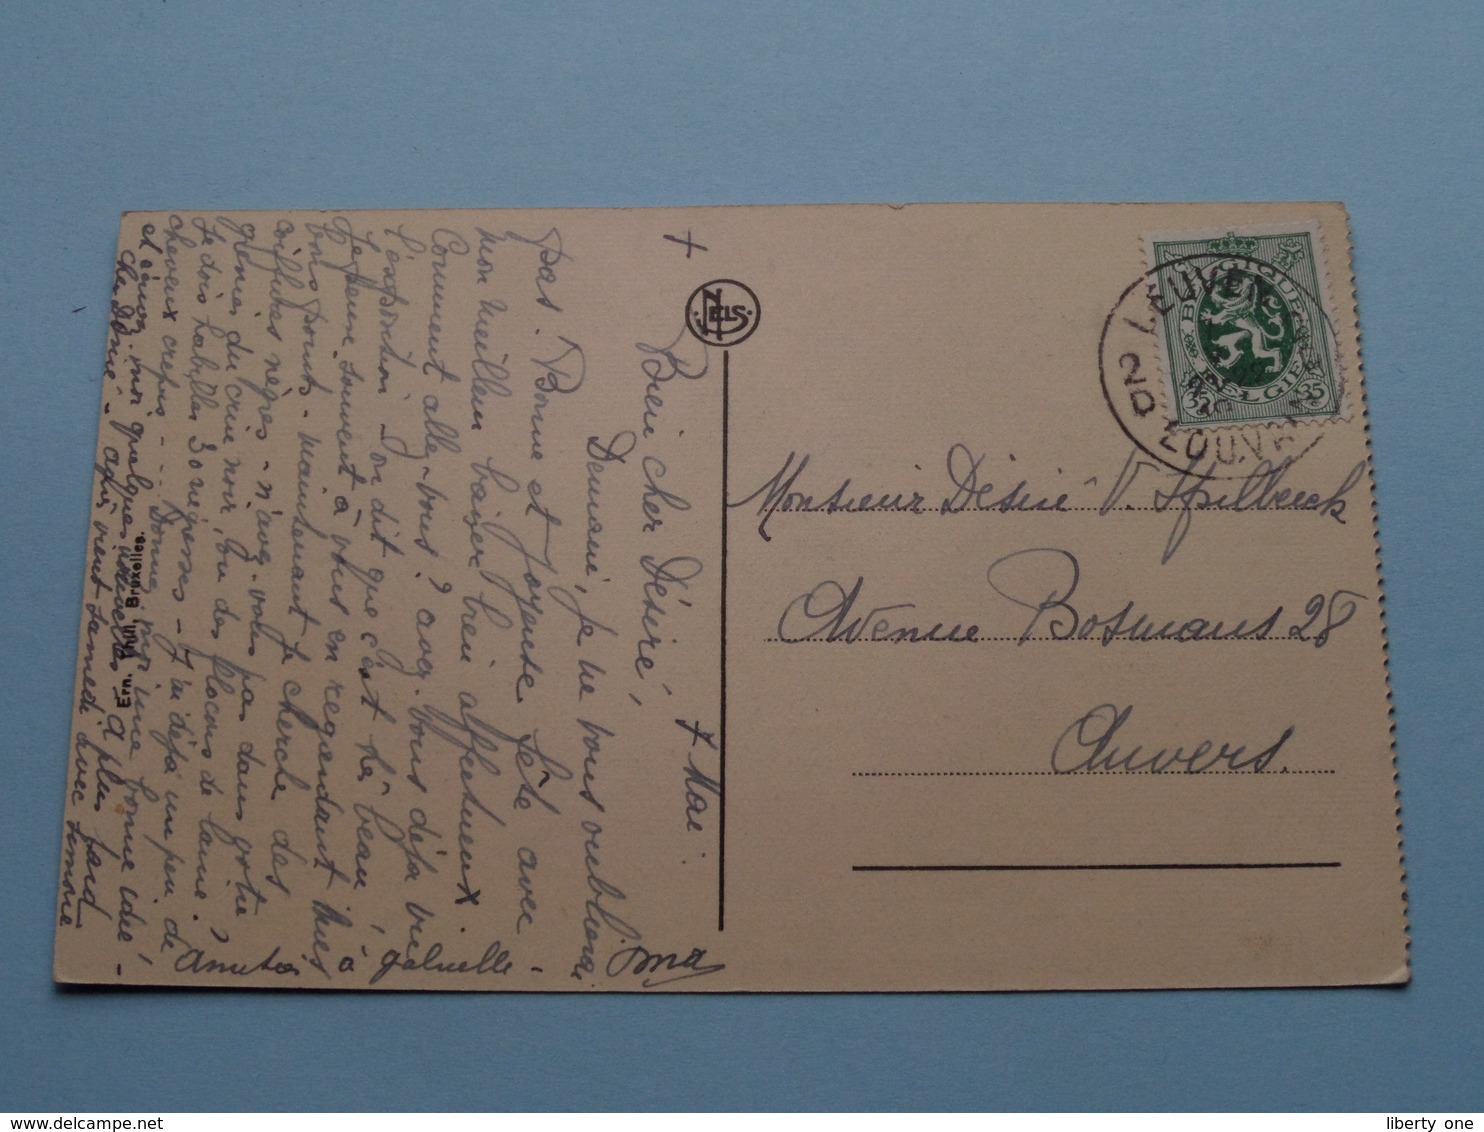 + Mai
Bien cher Désiré,
Demain, je ne vous oublierai
pas. Bonne et joyeuse fête avec
mon meilleur baiser bien affectueux
Comment alle-vous? avez-vous déjà vu
l'exposition? on dit que c'est très beau,
Je pense souvent à vous en regardant mes
bons points. maintenant je cherche des
coiffures nègres - n'avez-vous pas dans votre
grenier du crin noir, ou des flocons de laine?
Je dois habiller 30 négresses - J'ai déjà un peu de
cheveux crépus - - - Donnez-moi une bonne idée
et envoyez-moi quelques nouvelles. à plus tard
cher Désiré - après vient samedi avec Simone
Gabrielle -
+
NELS
Ern. Thill, Bruxelles.
LEUVEN
2D
LOUVAIN
BELGIQUE
BELGIE
35
35
Monsieur Désiré V. Spilbeeck
Avenue Bosmans 28
Anvers.
liberty one